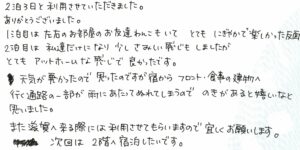 2泊3日で利用させていただきました。
ありがとうございました。
1泊目は左右のお部屋のお友達わんこもいて とても にぎやかで楽しかった反面
2泊目は私達だけになり 少し さみしい感じもしましたが
とても アットホームな感じで良かったです。
天気が悪かったので 思ったのですが宿から フロント・食事の建物へ
行く通路の一部が 雨にあたってぬれてしまうので のきがあると嬉しいなと
思いました。
また滋賀へ来る際には利用させてもらいますので 宜しくお願いします。
次回は 2階へ宿泊したいです。